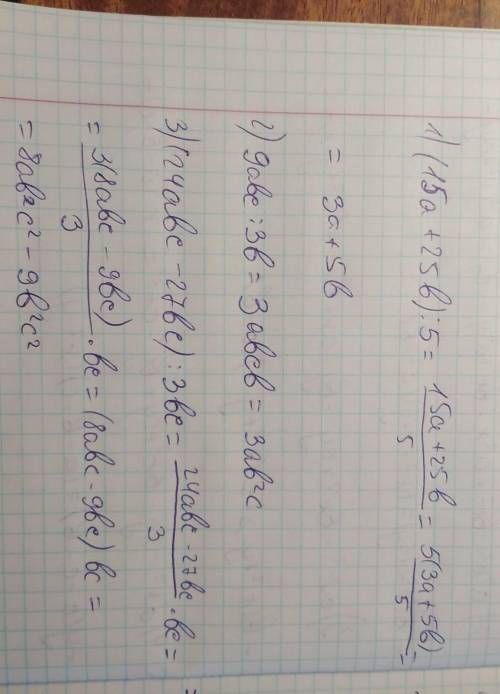 1) (15a + 25b) : 5 = \frac{15a + 25b}{5} = \frac{5(3a + 5b)}{5} =
= 3a + 5b
2) 9abc : 3b = 3abcb = 3ab²c
3) (24abc - 27bc) : 3bc = \frac{24abc - 27bc}{3} · bc =
= \frac{3(8abc - 9bc)}{3} · bc = (8abc - 9bc) bc =
= 8ab²c² - 9b²c²